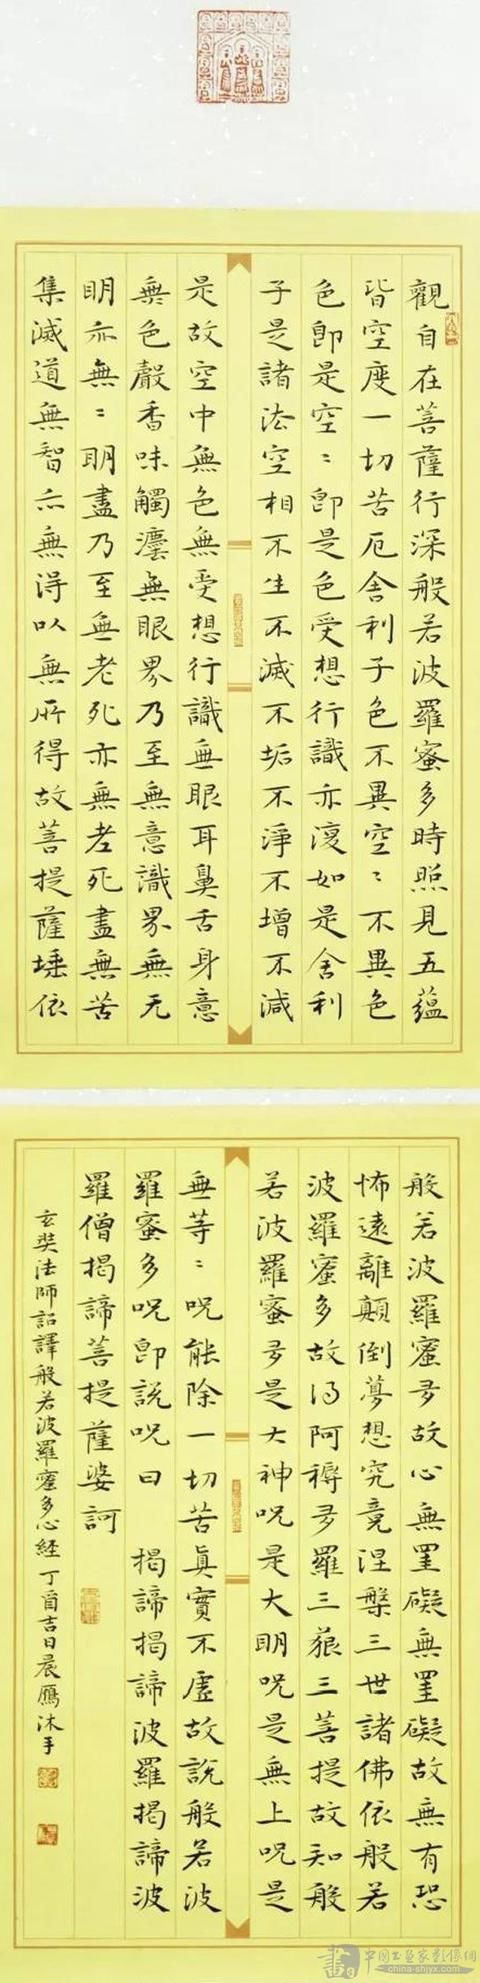 觀自在菩薩行深般若波羅蜜多時照見五蘊
皆空度一切苦厄舍利子色不異空〻不異色
色即是空〻即是色受想行識亦復如是舍利
子是諸法空相不生不滅不垢不淨不增不減
是故空中無色無受想行識無眼耳鼻舌身意
無色聲香味觸灋無眼界乃至無意識界無无
明亦無〻明盡乃至無老死亦無老死盡無苦
集滅道無智亦無得以無所得故菩提薩埵依
般若波羅蜜多故心無罣礙無罣礙故無有恐
怖遠離顛倒夢想究竟涅槃三世諸佛依般若
波羅蜜多故得阿耨多羅三藐三菩提故知般
若波羅蜜多是大神咒是大明咒是無上咒是
無等〻咒能除一切苦真實不虛故說般若波
羅蜜多咒即說咒曰 揭諦揭諦波羅揭諦波
羅僧揭諦菩提薩婆訶
玄奘法師詔譯般若波羅蜜多心經丁酉吉日晨雁沐手
china-shjyx.com